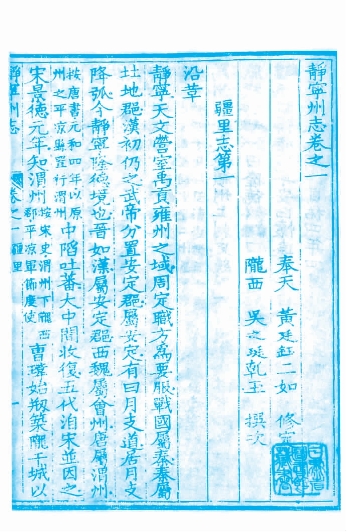 靜寧州志卷之一
奉天 黃廷鈺二如 修定
隴西 吳之珽乾玉 撰次
疆里志第一
沿革
靜寧天文營室禹貢雍州之域周定職方為要服戰國屬秦秦屬
北地郡漢初仍之武帝分置安定郡屬安定有曰月支道居月支
降弧今靜寧隆德境也晉如漢屬安定郡西魏屬會州唐屬渭州
按唐書元和四年以原
州之平涼縣置行渭州
中陷吐蕃大中間收復五代洎宋並因之
宋景德元年知渭州
按宋史渭州下隴西
郡平涼軍節度使
曹瑋始剏築隴干城以
靜寧州志
卷之一
疆里
一